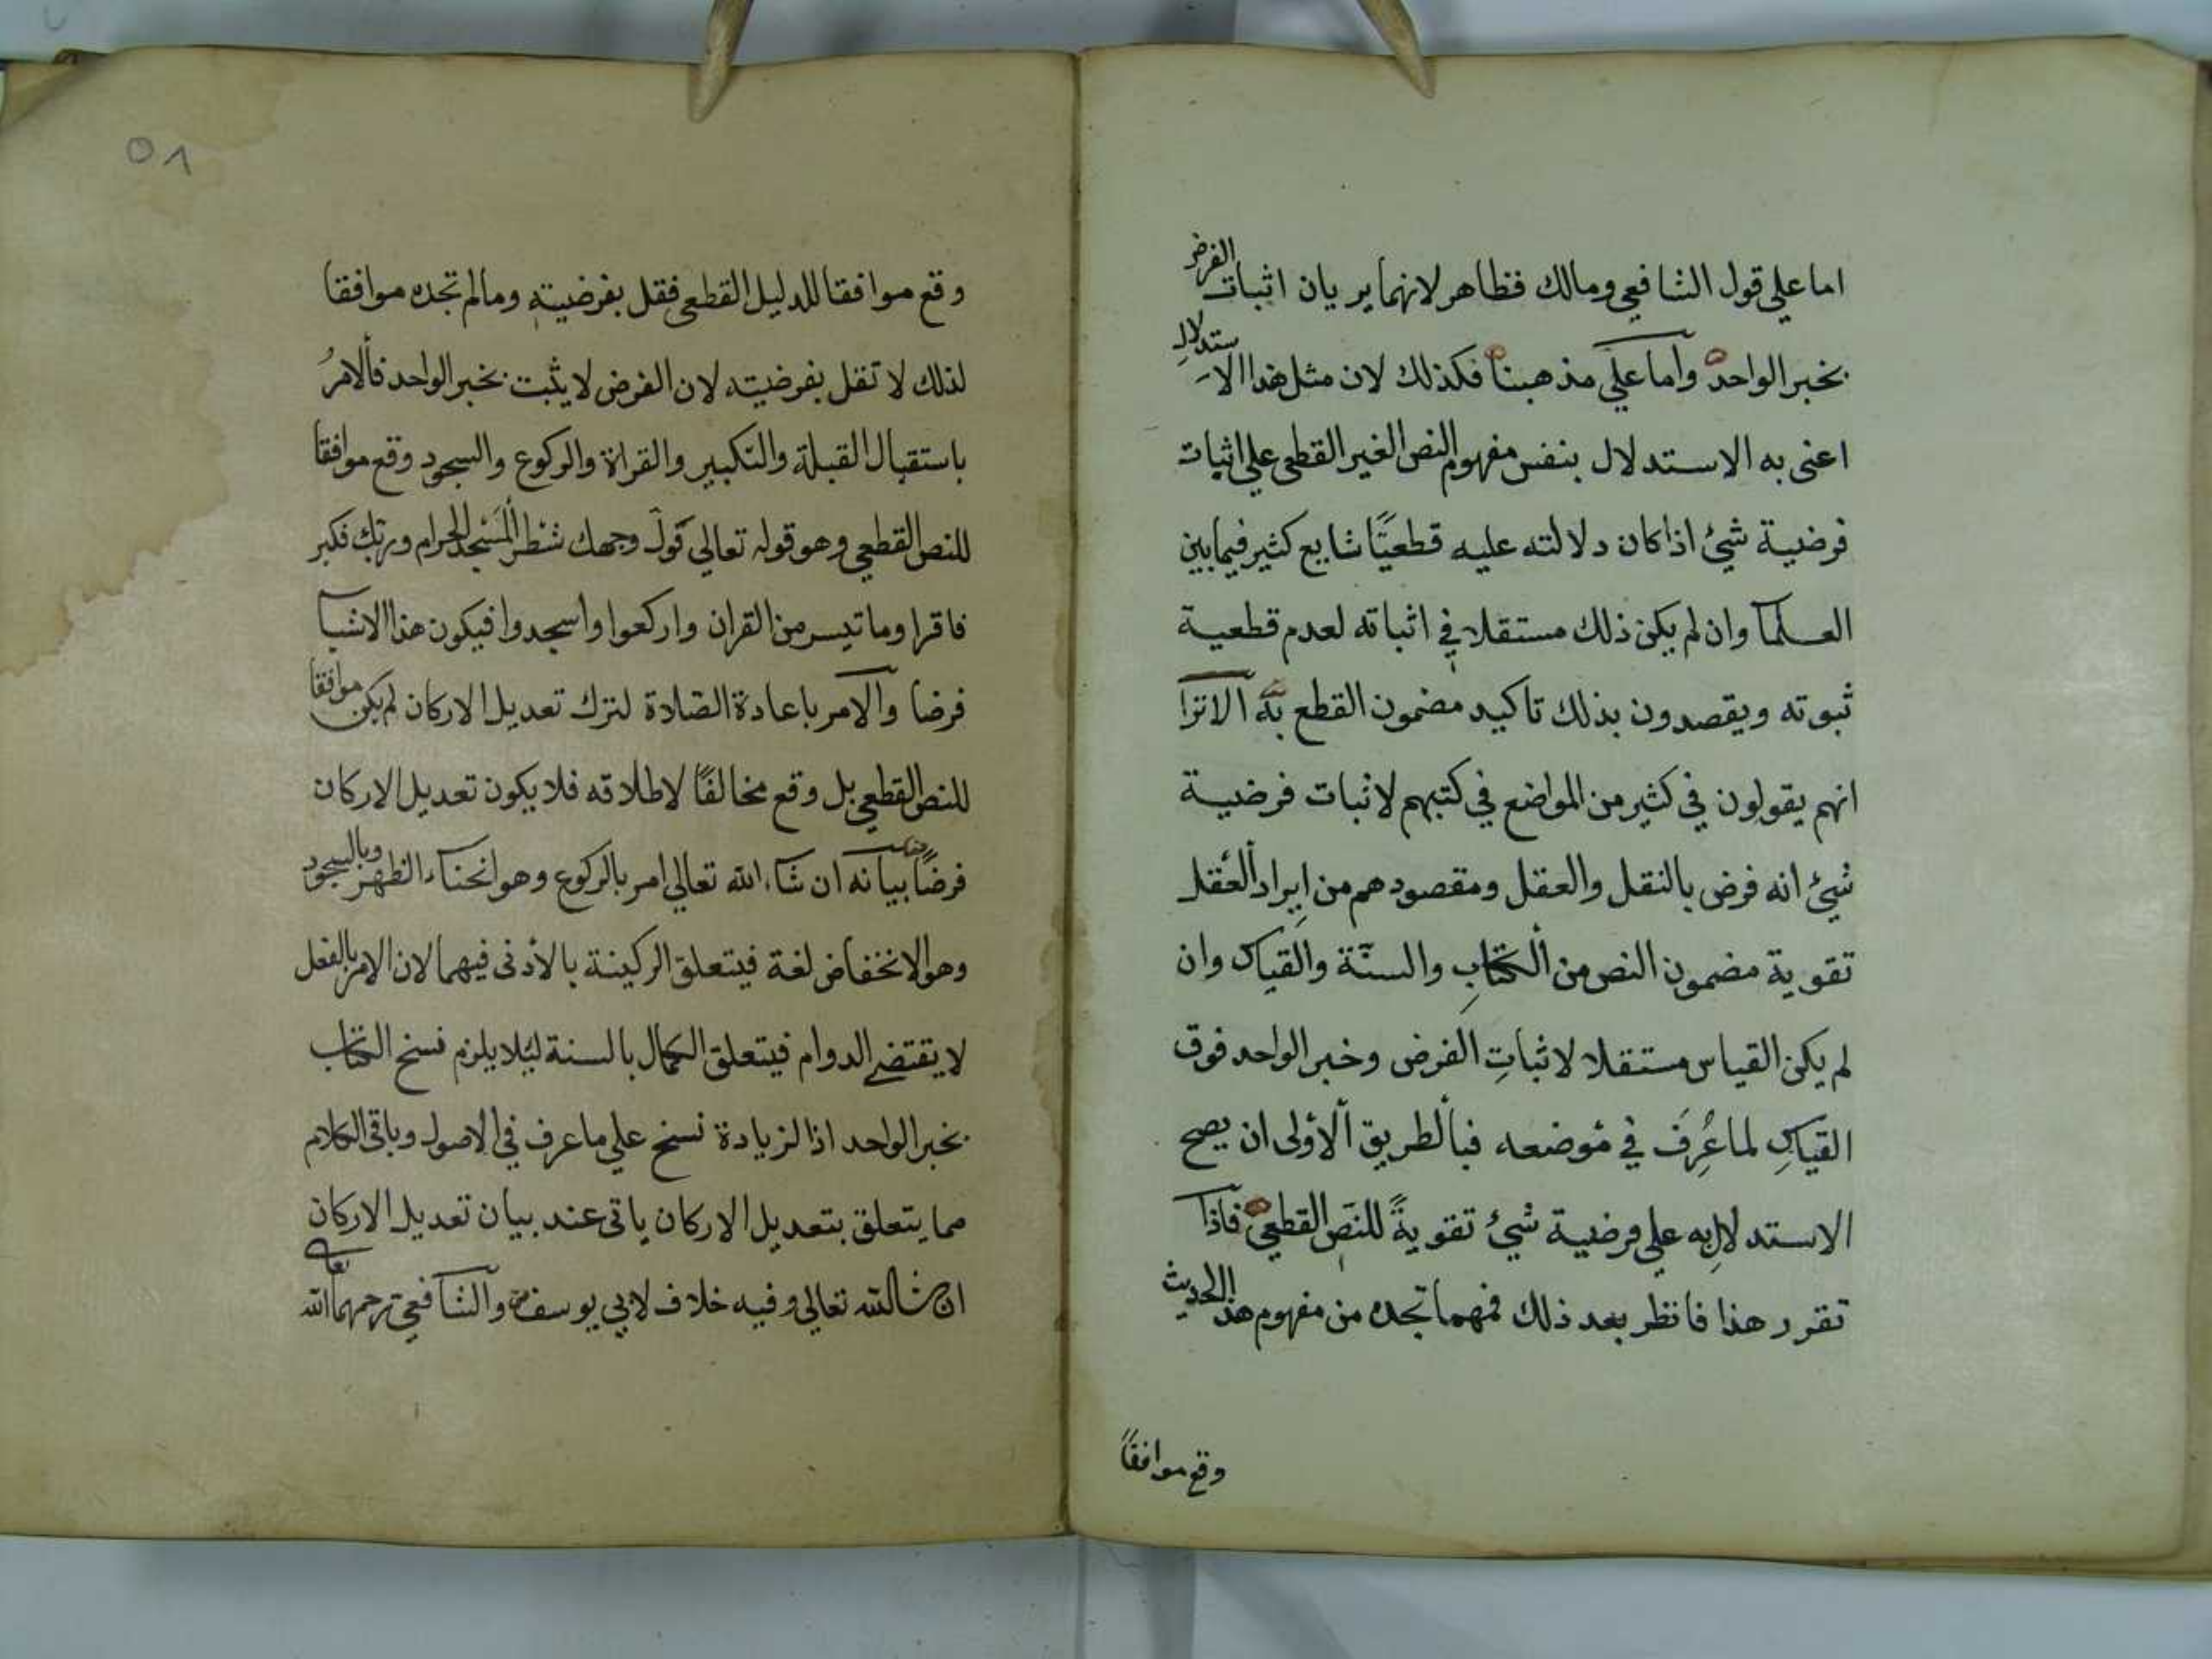 اما علي قول الشافعي ومالك فظاهر لانهما يريان اثبات الفرض
بخبر الواحد واما علي مذهبنا فكذلك لان مثل هذا الاستدلال
اعنى به الاستدلال بنفس مفهوم النص الغير القطعى علي اثبات
فرضية شئ اذا كان دلالته عليه قطعيًّا شايع كثير فيما بين
العلمآ وان لم يكن ذلك مستقلا في اثباته لعدم قطعية
ثبوته ويقصدون بذلك تاكيد مضمون القطع به الا ترا
انهم يقولون في كثير من المواضع في كتبهم لاثبات فرضية
شئ انه فرض بالنقل والعقل ومقصودهم من ايراد العقل
تقوية مضمون النص من الكتاب والسنّة والقياس وان
لم يكن القياس مستقلا لاثباتِ الفرض وخبر الواحد فوق
القياسِ لما عُرِفَ في موضعه فبالطريق الاولى ان يصح
الاستدلالِ به علي فرضية شئ تقويةً للنصّ القطعى فاذا
تقرر هذا فانظر بعد ذلك فمهما تجده من مفهوم هذا الحديث
وقع موافقاً
٥٨
وقع موافقا للدليل القطعى فقل بفرضيته ومالم تجده موافقا
لذلك لا تقل بفرضيته لان الفرض لا يثبت بخبر الواحد فالامرُ
باستقبال القبلة والتكبير والقراة والركوع والسجود وقع موافقا
للنص القطعي وهو قوله تعالي فولّ وجهك شطر المسجد الحرام وربك فكبر
فاقراوما تيسر من القران واركعوا واسجدوا فيكون هذا الاشيآ
فرضا والامر باعادة الصّلاة لترك تعديل الاركان لم يكن موافقا
للنص القطعي بل وقع مخالفًا لاطلاقه فلا يكون تعديل الاركان
فرضًا بيانه ان شآء الله تعالي امر بالركوع وهو انحناء الظهر وبالسجود
وهو الانخفاض لغة فيتعلق الركينة بالأدنى فيهما لان الامر بالفعل
لا يقتضي الدوام فيتعلق الكمال بالسنة لئلا يلزم نسخ الكتاب
بخبر الواحد اذا لزيادة نسخ علي ما عرف في الاصول وباقى الكلام
مما يتعلق بتعديل الاركان ياتى عند بيان تعديل الاركان
ان شالله تعالي وفيه خلاف لابي يوسف والشافعي رحمهما الله تعالى